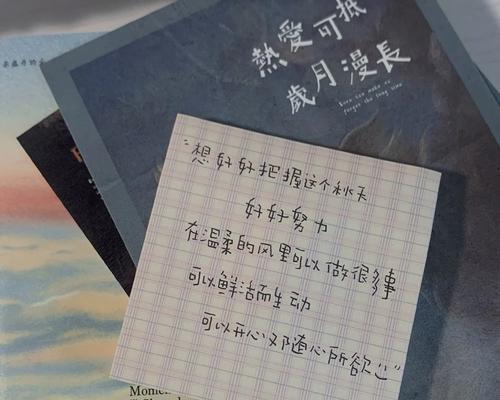 熱愛可抵
歲月漫長
Love can make us
forget the long time
“想好好把握这个秋天
好好努力
在温柔的风里可以做很多事
可以鲜活而生动
可以开心又随心所欲”